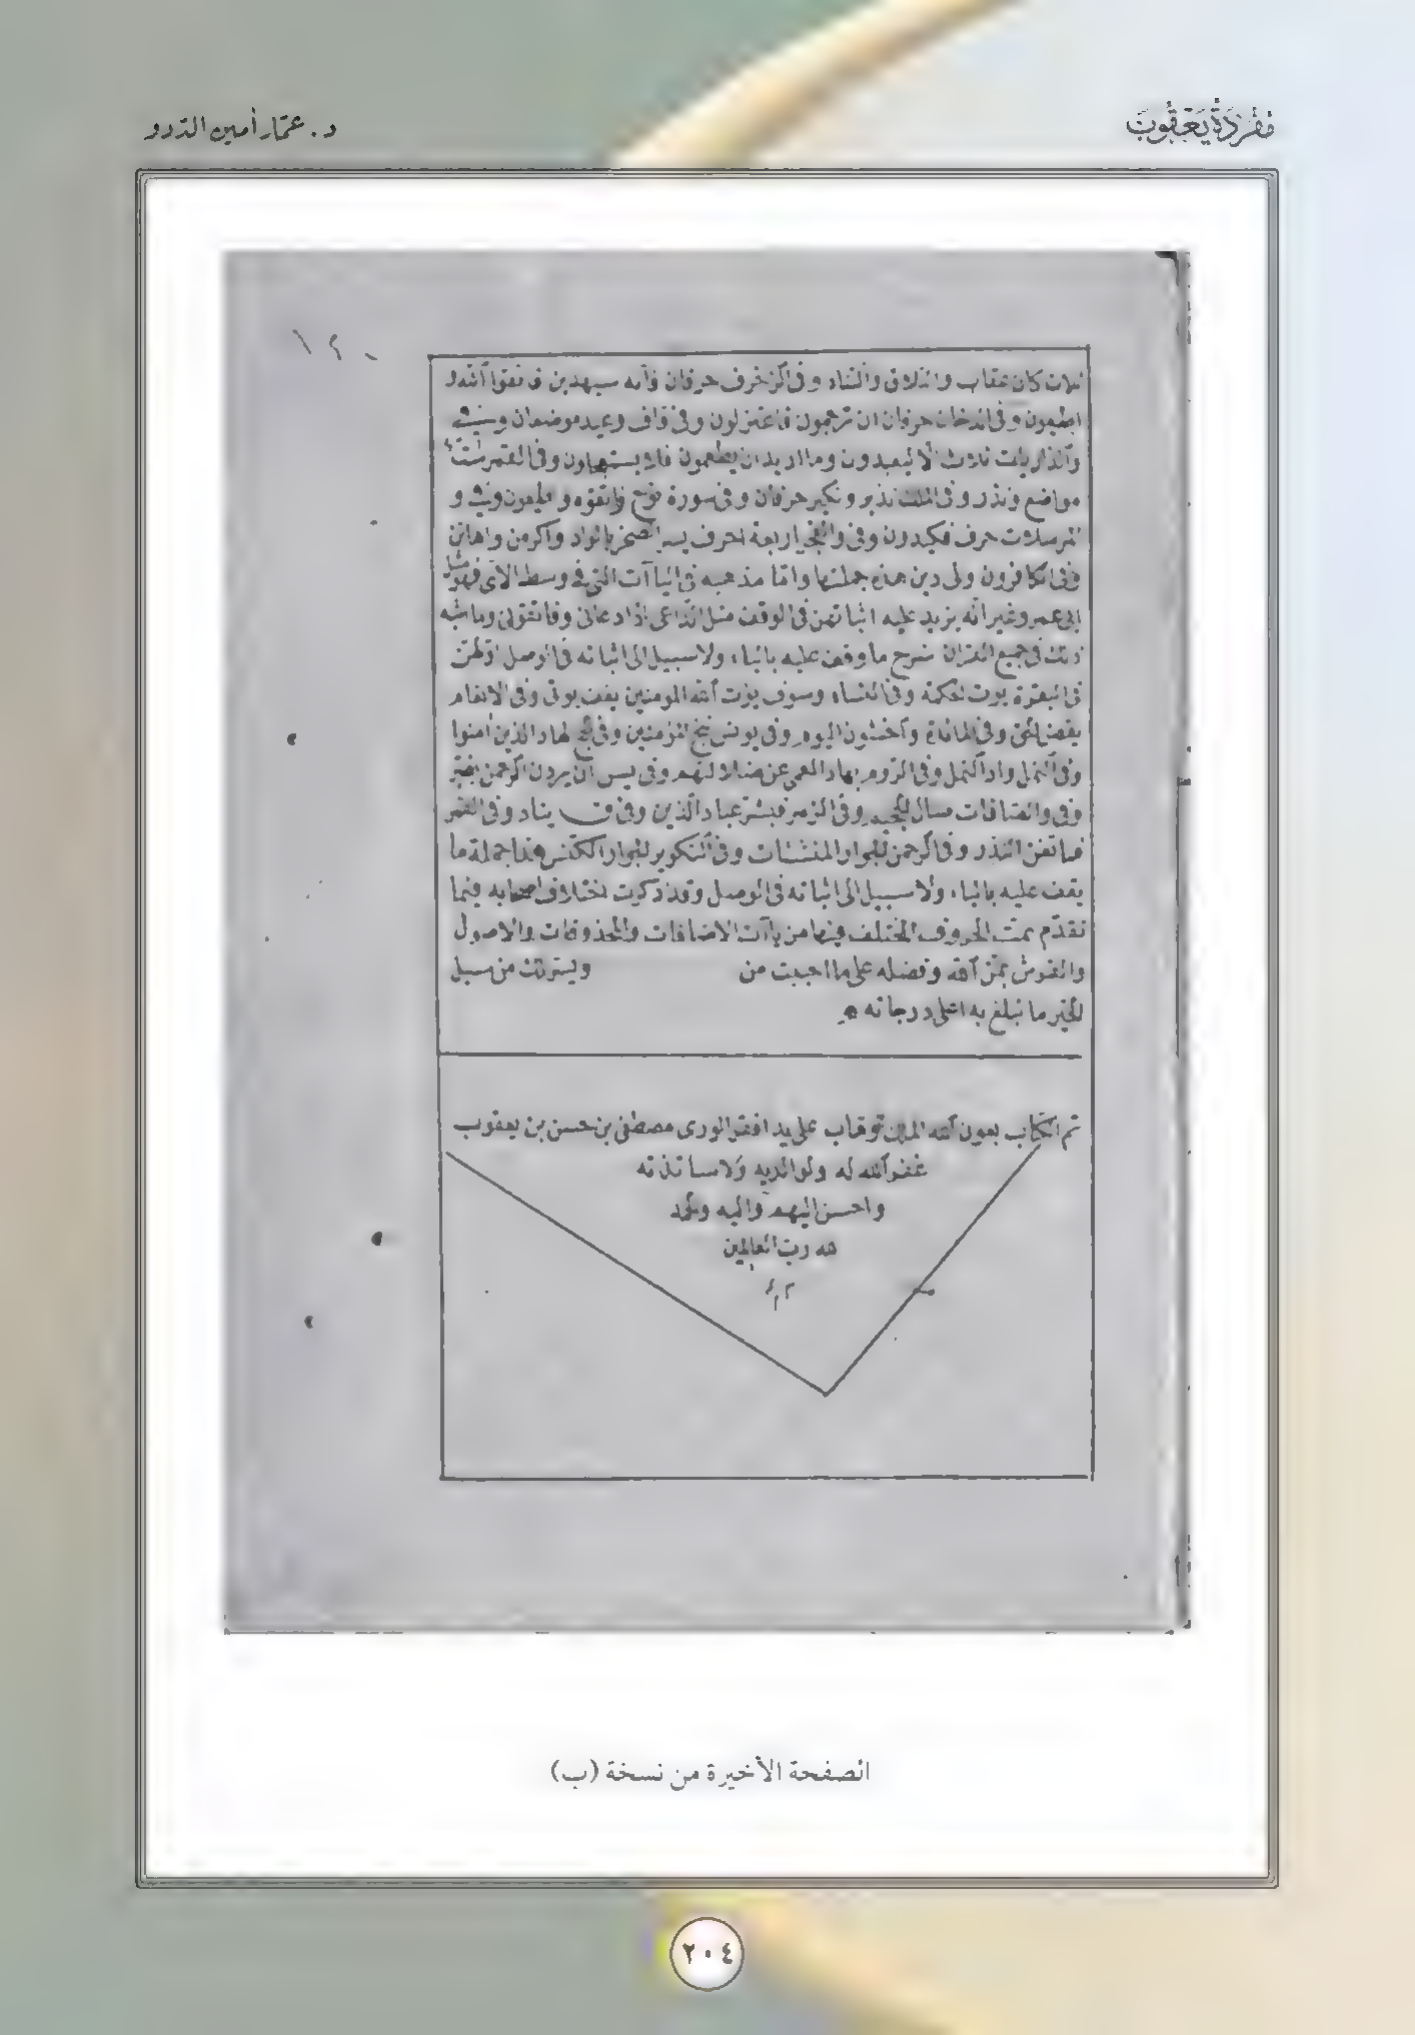 مُفْرَدَةُ يَعْقُوبَ
د. عمّار أمين الددو
١٢٠
ثلاث كان عقاب والتلاق والتناد وفي الزخرف حرفان فأنه سيهدين فاتقوا الله و
اطيعون وفي الدخان حرفان ان ترجمون فاعتزلون وفي قاف وعيد موضعان وفي
والذاريات ثلاث الا ليعبدون وما اريد ان يطعمون فلا يستعجلون وفي القمر ستة
مواضع ونذر وفي الملك نذير ونكير حرفان وفي سورة نوح فاتقوه واطيعون وفي و
المرسلات حرف فكيدون وفي والفجر اربعة احرف يسر الصخر بالواد واكرمن واهانن
وفي الكافرون ولي دين هذه جملتها واما مذهبه في الياآت التي في وسط الآي فهو مثل
ابي عمرو غير انه يزيد عليه اثباتهن في الوقف مثل الداعي اذا دعاني وفاتقوني وما شبه
ذلك في جميع القران شرح ما وقف عليه بالياء ولا سبيل الى اثباته في الوصل اولهن
في البقرة يوت الحكمة وفي النساء وسوف يؤت الله المومنين يقف يوتي وفي الانعام
يقض الحق وفي المائدة واخشون اليوم وفي يونس ننج المؤمنين وفي الحج لهاد الذين امنوا
وفي النمل واد النمل وفي الروم بهاد العمى عن ضلالتهم وفي يس ان يردن الرحمن بضر
وفي والصافات صال الجحيم وفي الزمر فبشر عباد الذين وفي ق يناد وفي القمر
فما تغن النذر وفي الرحمن الجوار المنشئات وفي التكوير الجوار الكنس هذا جملة ما
يقف عليه بالياء ولا سبيل الى اثباته في الوصل وقد ذكرت اختلاف اصحابه فيما
تقدّم تمت الحروف المختلف فيها من ياآت الاضافات والمحذوفات والاصول
والفرش بمنّ الله وفضله على ما احببت من ويسرتك من سبيل
الخير ما تبلغ به اعلى درجاته
تم الكتاب بعون الله الملك الوهاب على يد افقر الورى مصطفى بن حسن بن يعقوب
غفر الله له ولوالديه ولاساتذته
واحسن اليهم واليه والحمد
لله رب العالمين
الصفحة الأخيرة من نسخة (ب)
٢٠٤